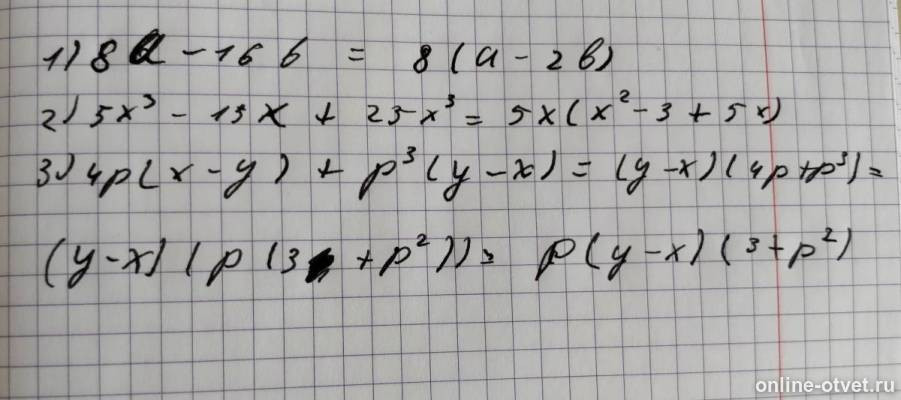 1) 8a - 16b = 8(a - 2b)
2) 5x³ - 15x + 25x³ = 5x(x² - 3 + 5x)
3) 4p(x - y) + p³(y - x) = (y - x)(4p + p³) =
(y - x)(p(3 + p²)) = p(y - x)(3 + p²)
online-otvet.ru